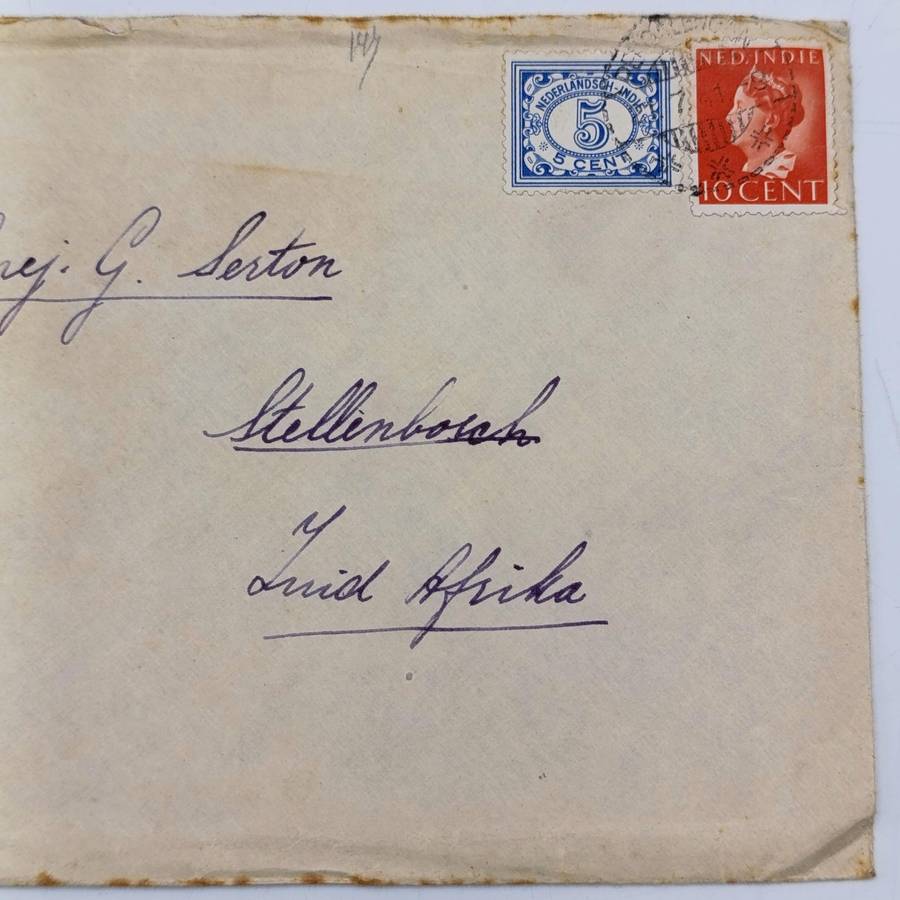 147
NEDERLANDSCH-INDIE
5
5 CENT
NED. INDIE
10 CENT
G. Serton
Stellenbosch
Zuid Afrika